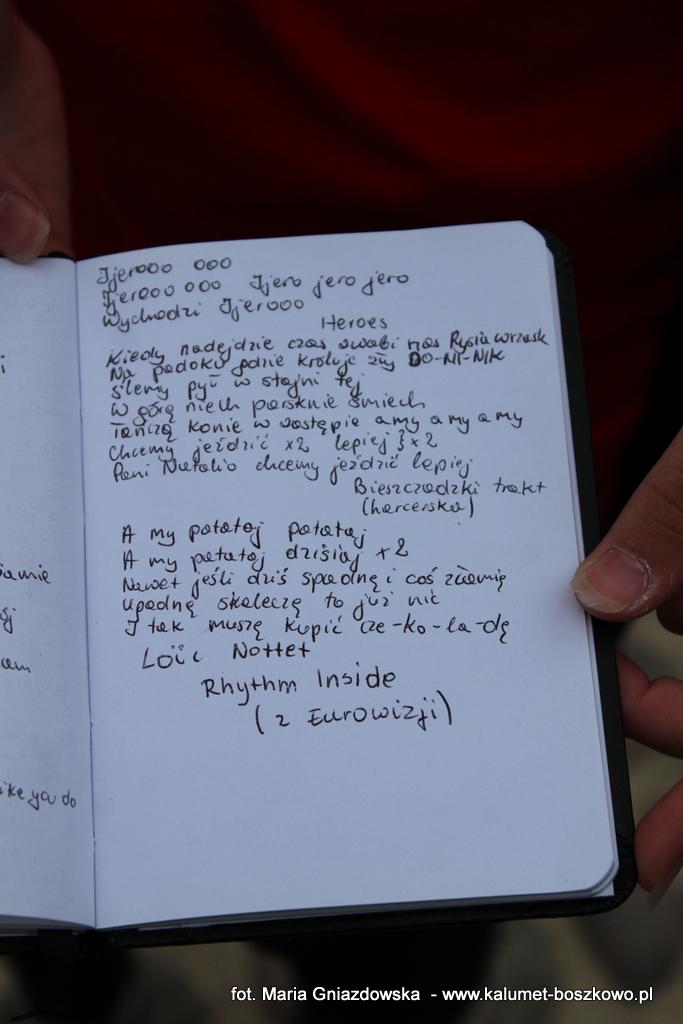 Jjerooo ooo
Jjerooo ooo Jjero jero jero
Wychodzi Jjerooo
Heroes
Kiedy nadejdzie czas wabi nas Rysia wrzask
Na padoku gdzie króluje zły DO-NI-NIK
ślemy pył w stajni tej
W górę niech parsknie śmiech
Tańczą konie w zastępie amy amy amy
Chcemy jeździć x2 lepiej } x2
Pani Natalio chcemy jeździć lepiej
Bieszczadzki trakt
(harcerska)
A my patataj patataj
A my patataj dzisiaj x2
Nawet jeśli dziś spadnę i coś złamię
upadnę skaleczę to już nic
I tak muszę kupić cze-ko-la-dę
Loïc Nottet
Rhythm Inside
(z Eurowizji)
i
amie
ój
am
ike you do
fot. Maria Gniazdowska - www.kalumet-boszkowo.pl